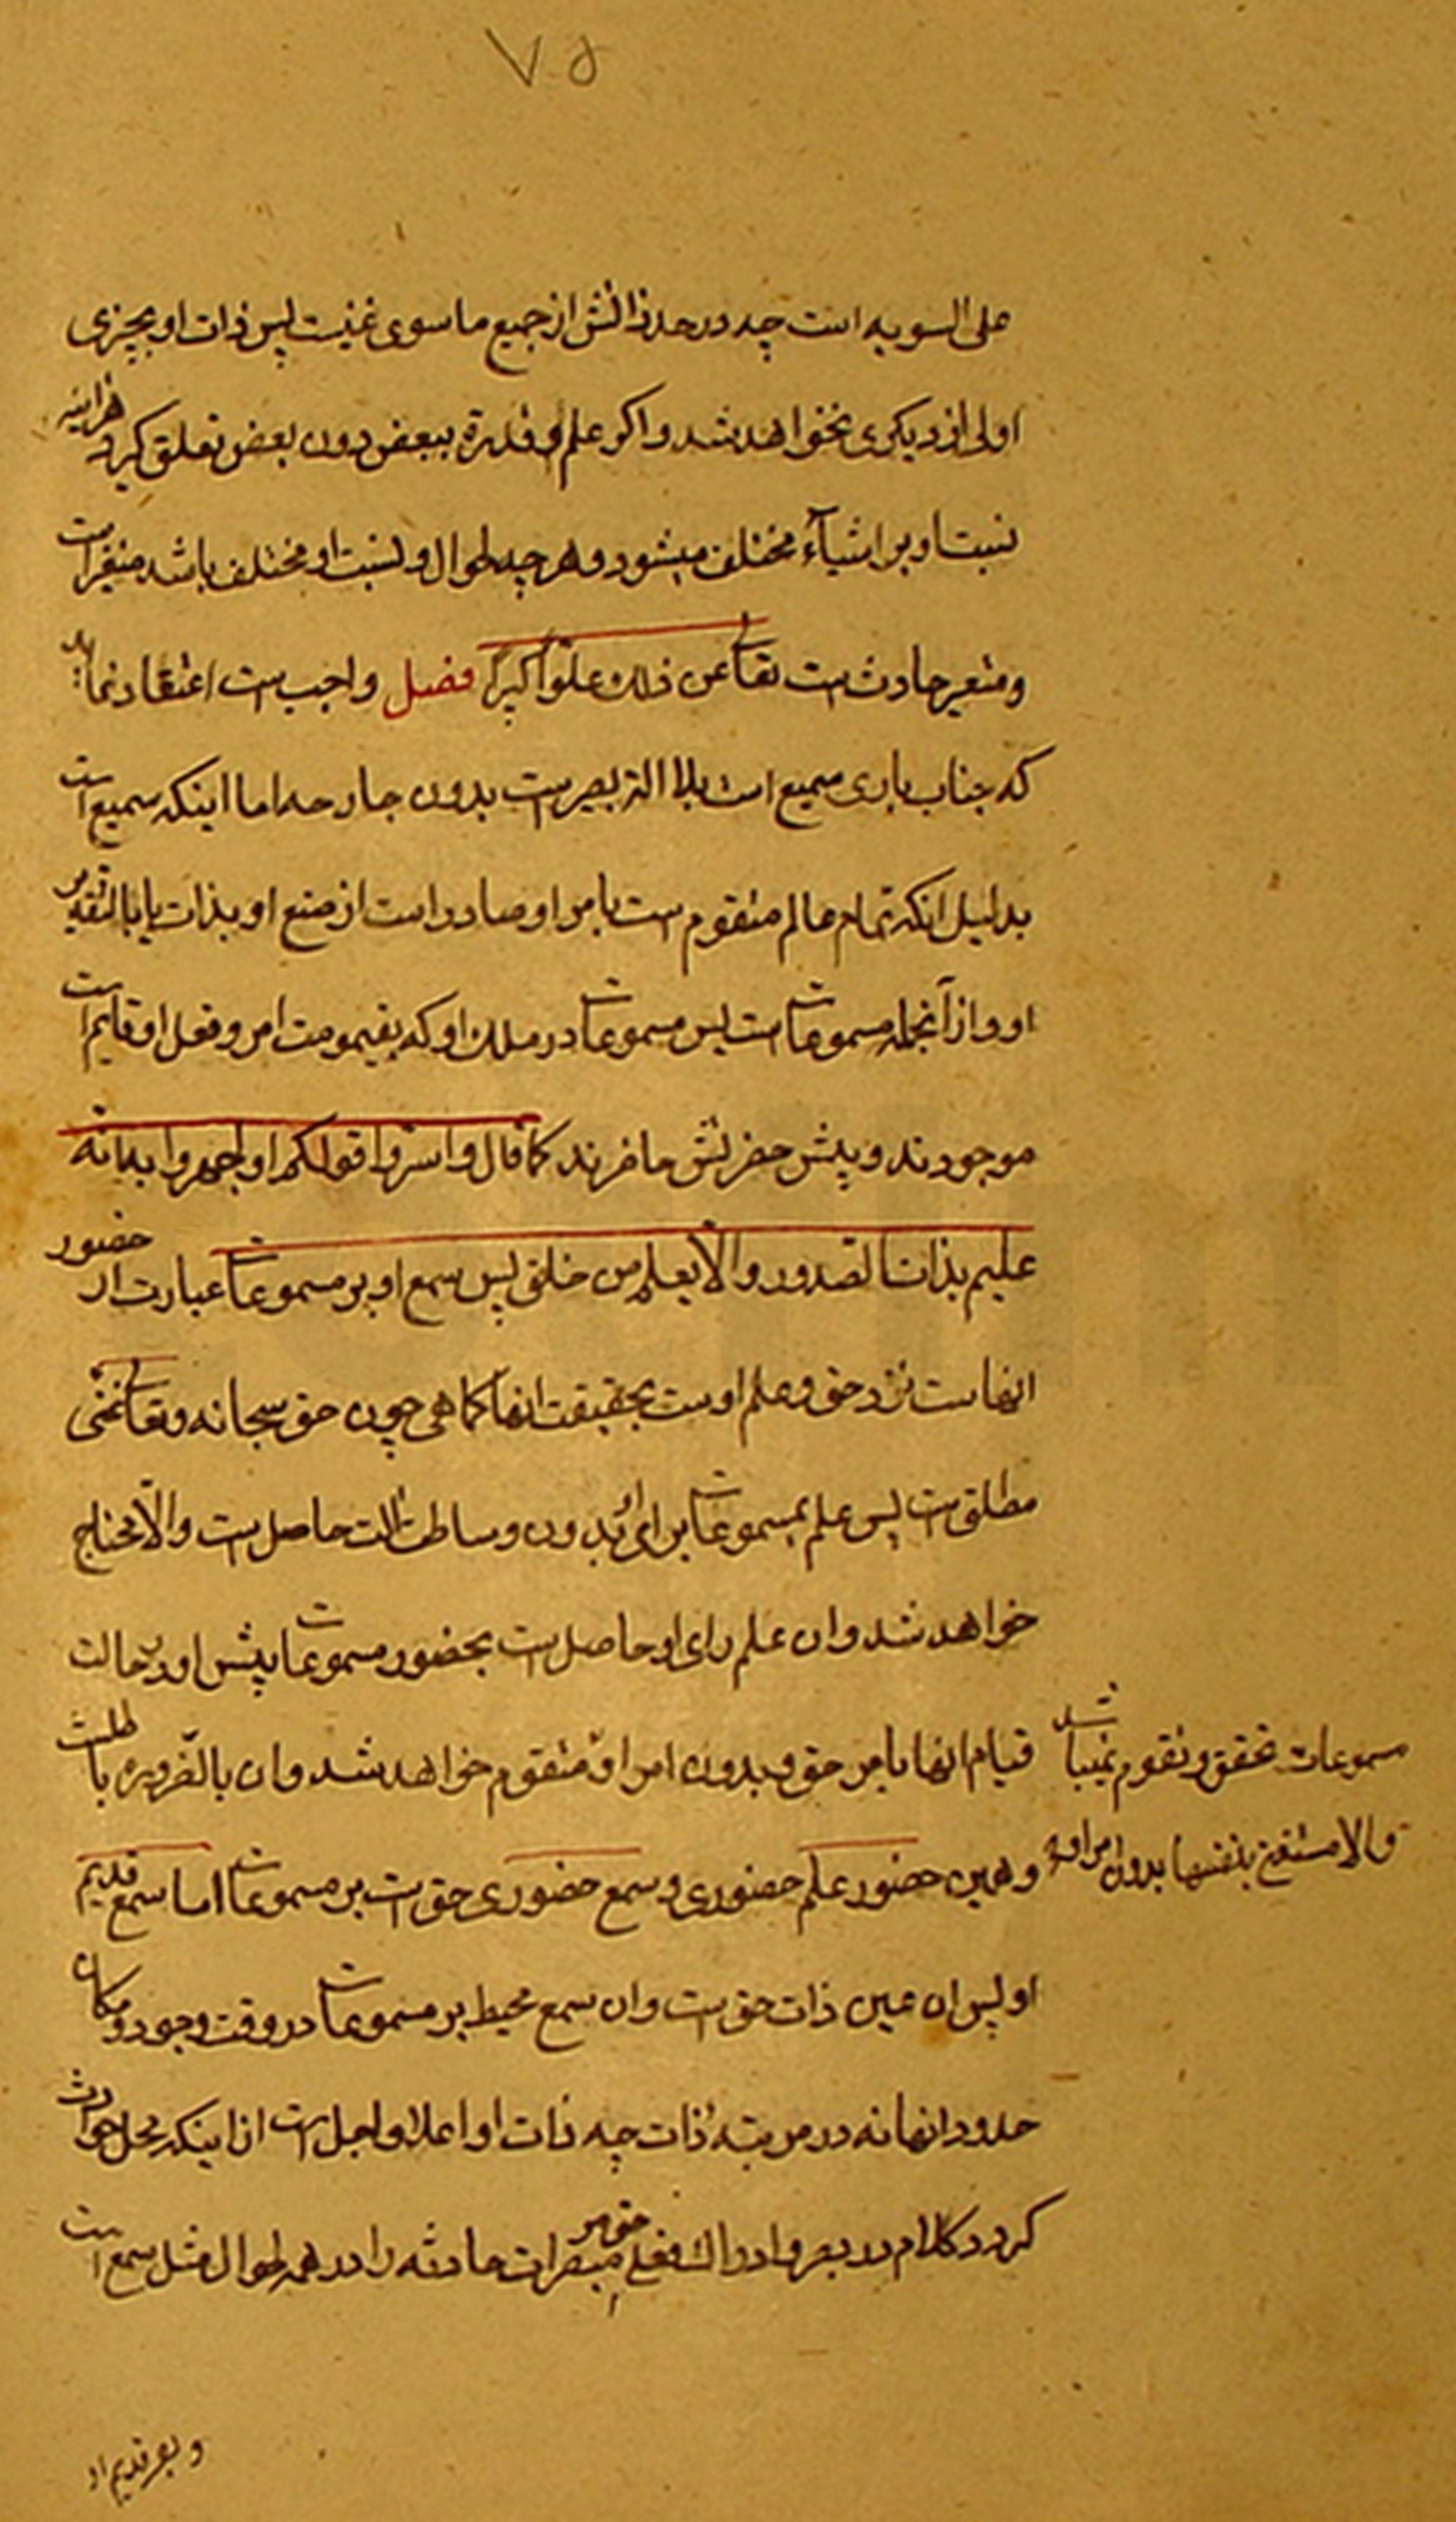 ۷۵
علی السویه است چه در حد ذاتش از جمیع ما سوی غنیست پس ذات او بچیزی
اولی از دیکری نخواهد شد و اکر علم و قدرة ببعض دون بعض تعلق کیرد هراینه
نسبت او بر اشیآء مختلف میشود و هر چه احوال و نسبت او مختلف باشد متغیر است
و متغیر حادث است تعالی عن ذلک علوّاً کبیراً فصل واجب است اعتقاد نماید
که جناب باری سمیع است بلا الة بصیر است بدون جارحه اما اینکه سمیع است
بدلیل انکه تمام عالم متقوم است بامر او صادر است از صنع او بذات یا بالقه
او و از آنجمله مسموعات است پس مسموعات در ملک او که بقیمومت امر و فعل او قایم است
موجودند و پیش حضرتش حاضرند کما قال و اسرّوا قولکم او اجهروا به انّه
علیم بذات الصّدور و الا یعلم من خلق پس سمع او بر مسموعات عبارت از حضور
انها است نزد حق و علم اوست بحقیقت انها کما هی چون حق سبحانه و تعالی غنی
مطلق است پس علم بمسموعات برای او بدون وساطت الت حاصل است و الّا محتاج
خواهد شد و ان علم برای او حاصل است بحضور مسموعات پیش او در حالت
قیام انها بامر حق و بدون امر او متقوم نخواهد شد و ان بالضّروره باطلست
مسموعات تحقق و تقوم نمیباشد
و الا مستغن بنفسها بدون امر او
و همین حضور علم حضوری و سمع حضوری حق است بر مسموعات اما سمع قدیم
او پس ان عین ذات حق است و ان سمع محیط بر مسموعات در وقت وجود و مکان
حدود انها نه در مرتبه ذات چه ذات او اعلا و اجل است از اینکه محل حوادث
کردد کلام در بصر و ادراک فعلی حق مر مبصرات حادثه را در همه احوال مثل سمع است
و بصر قدیم او